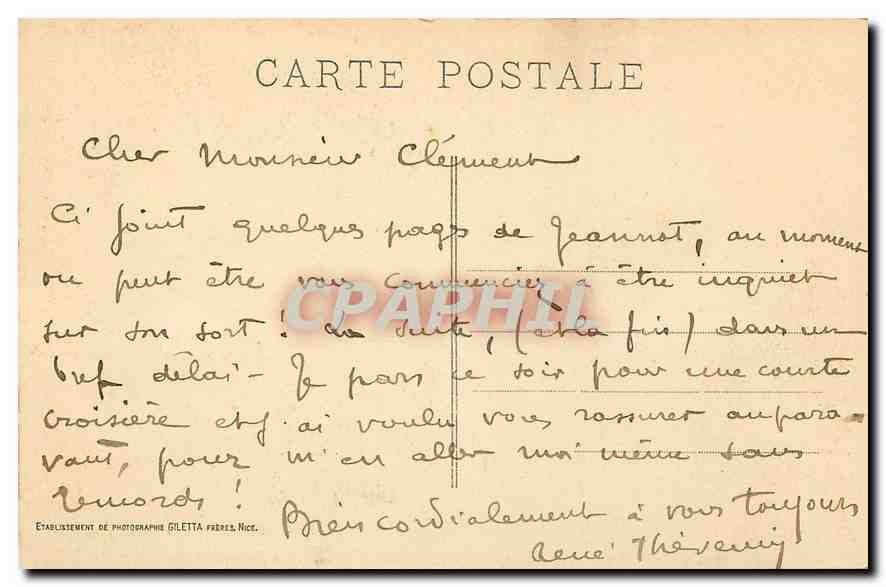 CARTE POSTALE
Cher Monsieur Clément
Ci joint quelques pages de Jeannot, au moment
ou peut être vous commenciez à être inquiet
sur son sort ! La suite, (et la fin) dans un
bref délai - Je pars ce soir pour une courte
croisière et j'ai voulu vous rassurer aupara-
vant, pour m'en aller moi même sans
remords !
Bien cordialement à vous toujours
René Thévenin
CPAPHIL
ETABLISSEMENT DE PHOTOGRAPHIE GILETTA FRÈRES, NICE.